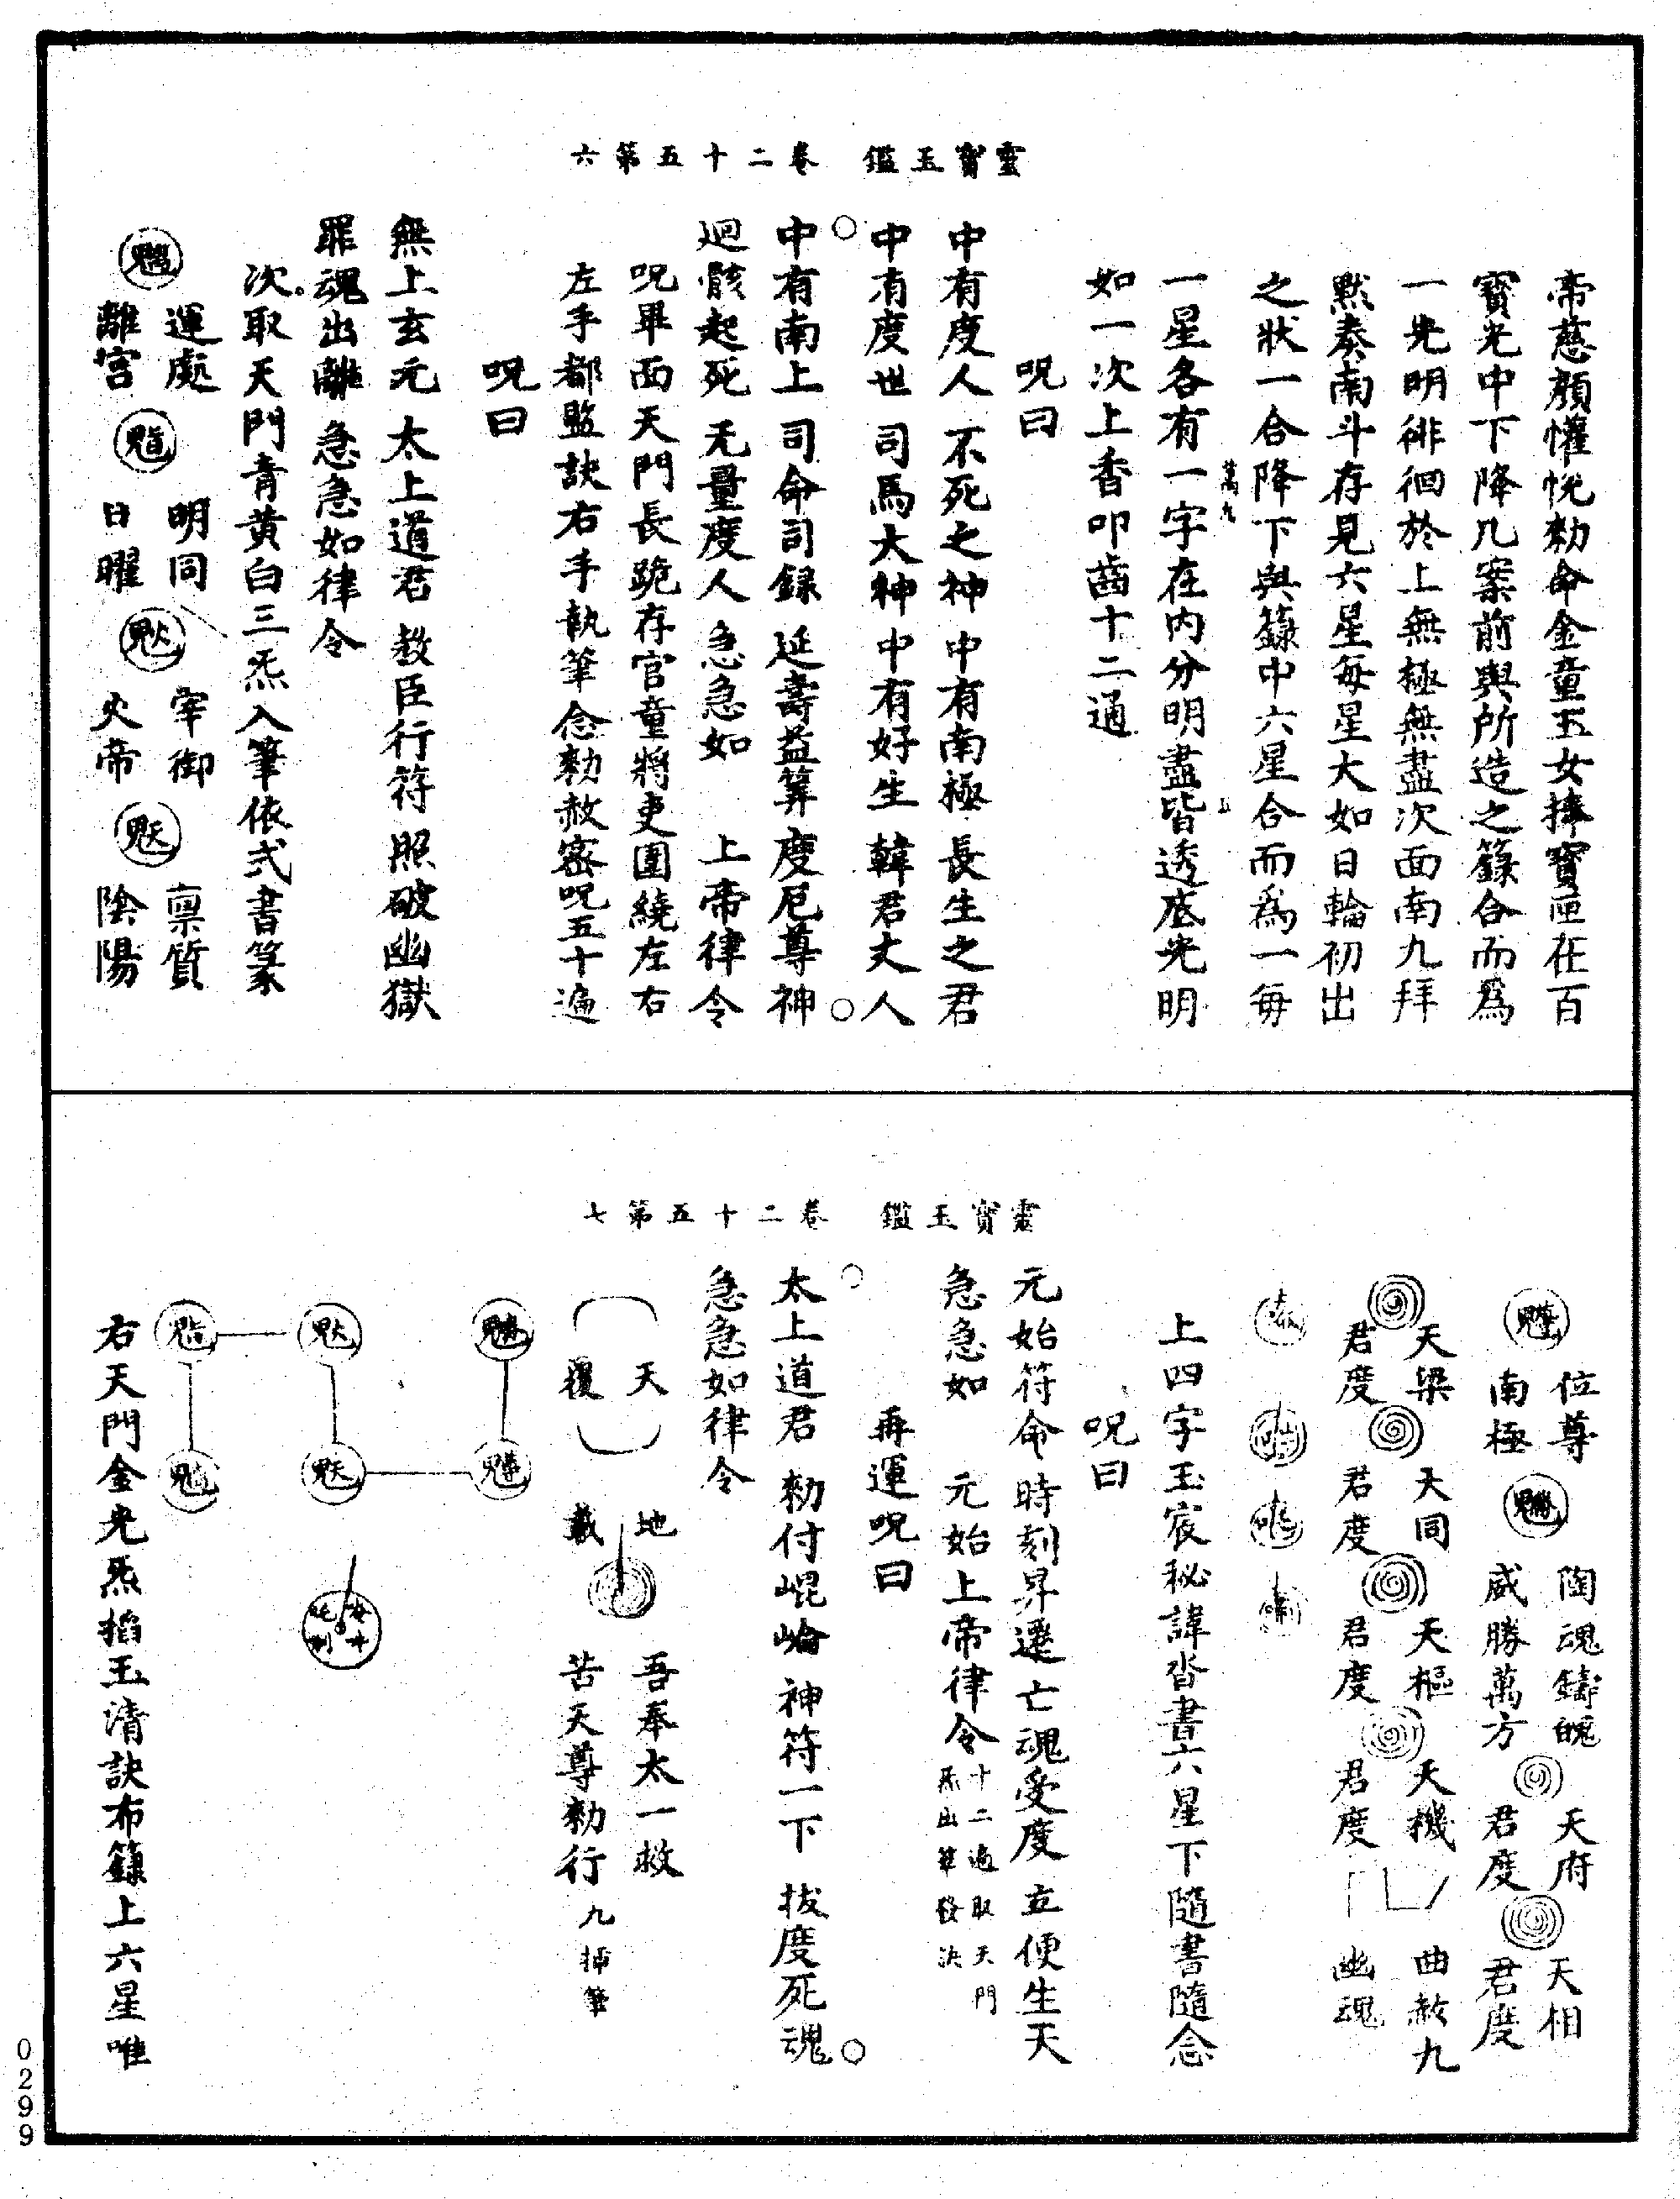 靈寶玉鑑　卷二十五第六
帝慈顏懽悅勑命金童玉女捧寶匣在百
寶光中下降几案前與所造之籙合而爲
一光明徘徊於上無極無盡次面南九拜
默奏南斗存見六星每星大如日輪初出
之狀一合降下與籙中六星合而爲一每
一星各有一字在內分明盡皆透底光明
如一次上香叩齒十二通
呪曰
中有度人 不死之神 中有南極 長生之君
中有度世 司馬大神 中有好生 韓君丈人
中有南上 司命司録 延壽益筭 度厄尊神
迴骸起死 无量度人 急急如　上帝律令
呪畢面天門長跪存官童將吏圍繞左右
左手都監訣右手執筆念勑赦密呪五十遍
呪曰
無上玄元 太上道君 敕臣行符 照破幽獄
罪魂出離 急急如律令
次取天門青黃白三炁入筆依式書篆
運處離宮 明同日曜 宰御火帝 稟質陰陽
靈寶玉鑑　卷二十五第七
位尊南極 陶魂鑄魄威勝萬方 天府君度 天相君度
天梁君度 天同君度 天樞君度 天機君度 曲赦九幽魂
上四字玉宸秘諱沓書六星下隨書隨念
呪曰
元始符命 時刻昇遷 亡魂受度 立便生天
急急如　元始上帝律令 十二遍取天門炁出筆發決
再運呪曰
太上道君 勑付崐崘 神符一下 拔度死魂
急急如律令
天覆 地載 吾奉太一救苦天尊勑行 九掃筆
右天門金光炁搯玉清訣布籙上六星唯
0299